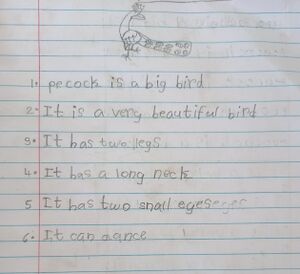 1. pecock is a big bird
2. It is a very beautiful bird
3. It has two legs
4. It has a long neck
5 It has two snall eyes
6. It can dance